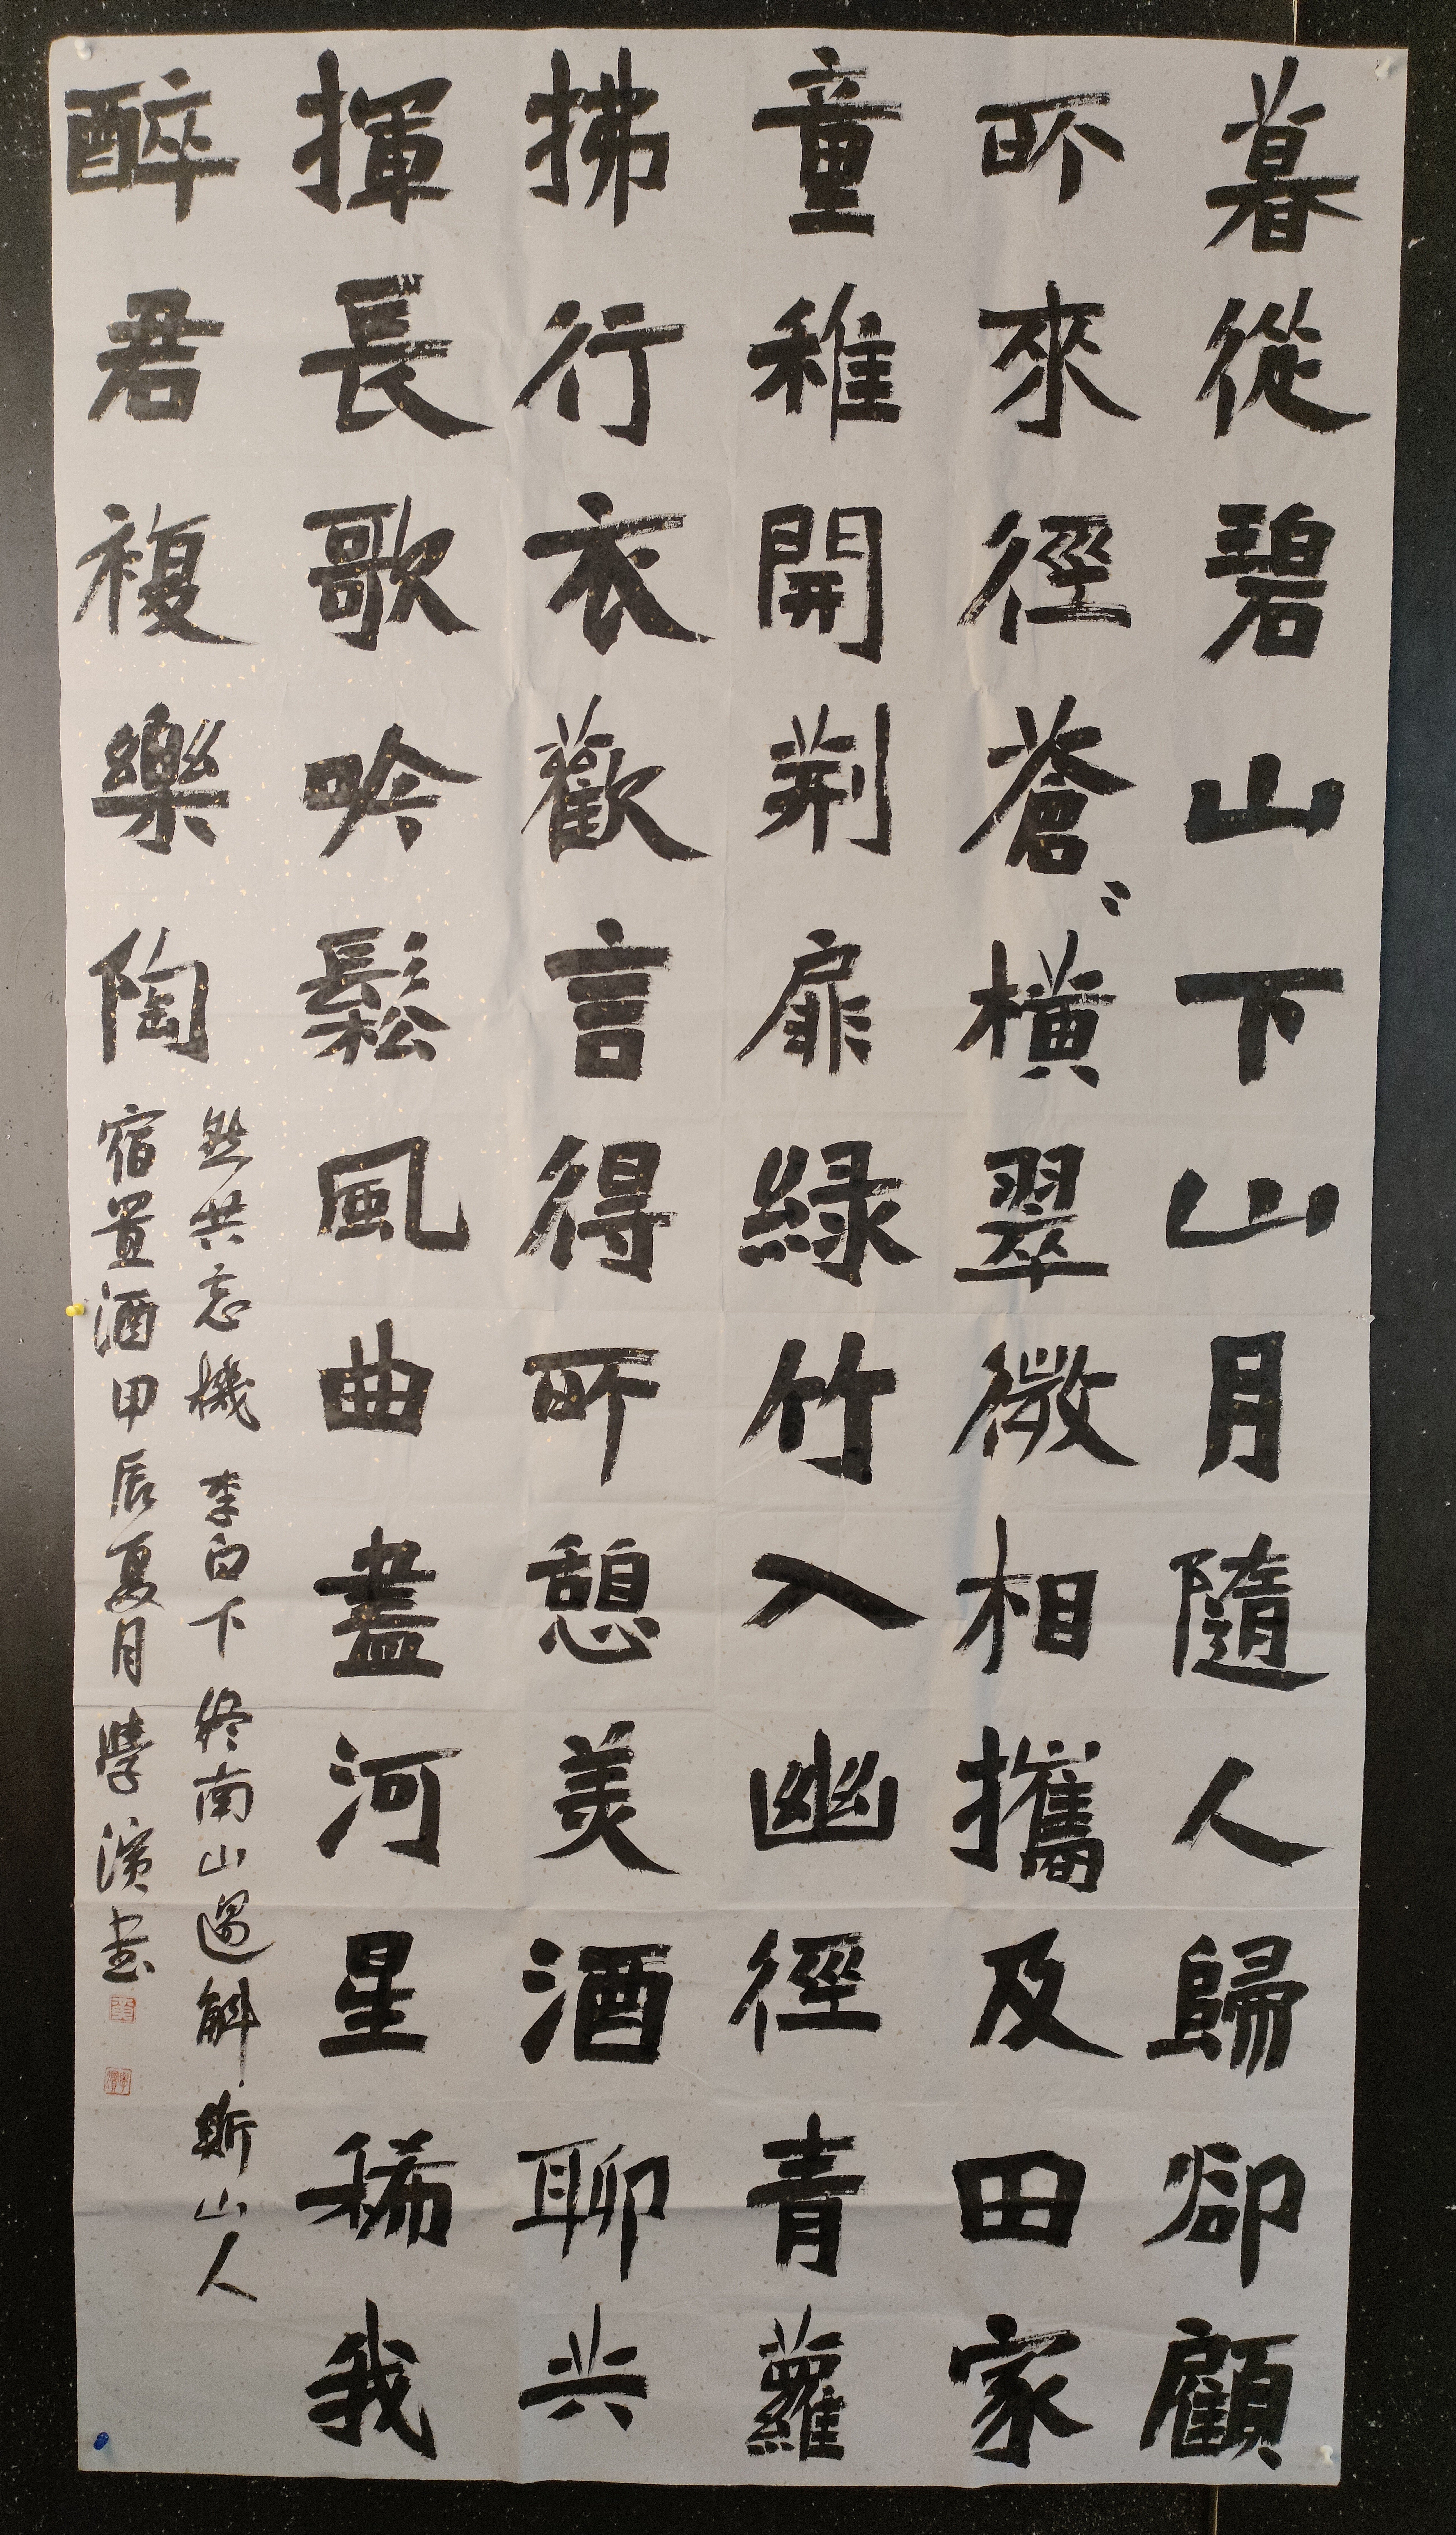 暮從碧山下山月隨人歸卻顧
所來徑蒼〻橫翠微相攜及田家
童稚開荆扉綠竹入幽徑青蘿
拂行衣歡言得所憩美酒聊共
揮長歌吟鬆風曲盡河星稀我
醉君複樂陶
然共忘機 李白下終南山過斛斯山人
宿置酒甲辰夏月學濱书